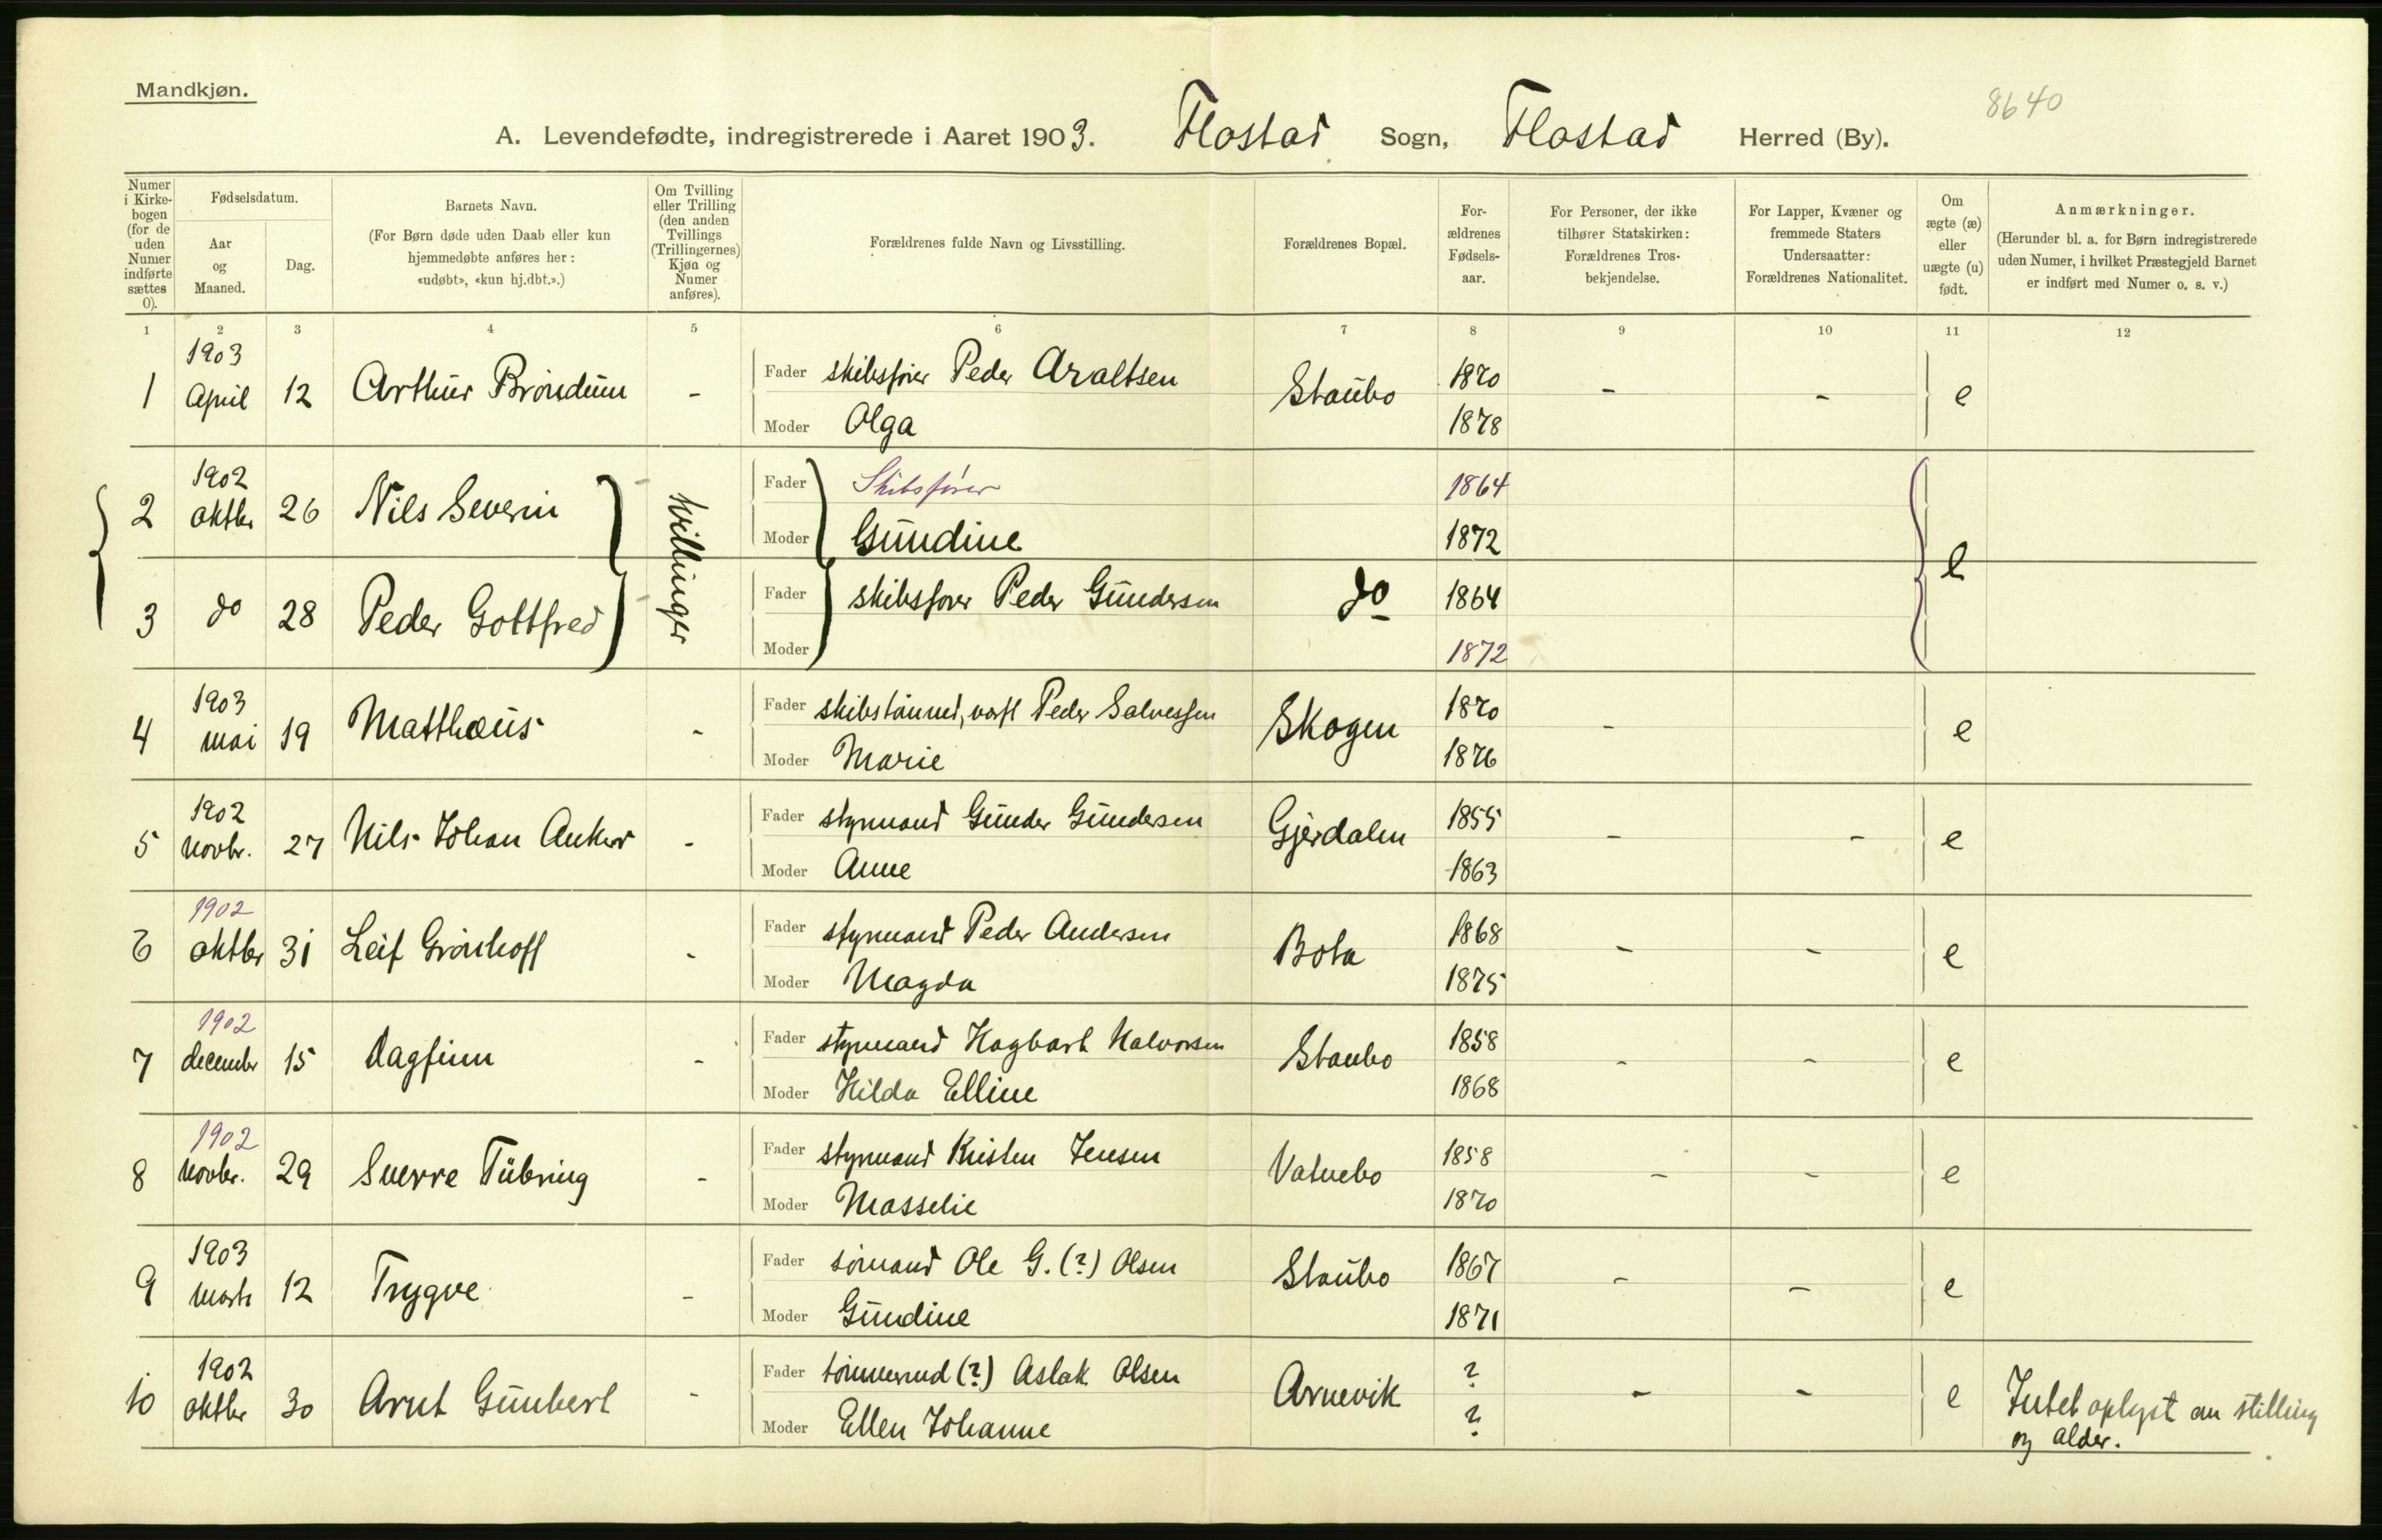 Mandkjøn.
8640
A. Levendefødte, indregistrerede i Aaret 1903. Flostad Sogn, Flostad Herred (By).
Numer i Kirkebogen (for de uden Numer indførte sættes 0).
Fødselsdatum.
Aar og Maaned.
Dag.
Barnets Navn.
(For Børn døde uden Daab eller kun hjemmedøbte anføres her: «udøbt», «kun hj.dbt.».)
Om Tvilling eller Trilling (den anden Tvillings (Trillingernes) Kjøn og Numer anføres).
Forældrenes fulde Navn og Livsstilling.
Forældrenes Bopæl.
Forældrenes Fødselsaar.
For Personer, der ikke tilhører Statskirken: Forældrenes Trosbekjendelse.
For Lapper, Kvæner og fremmede Staters Undersaatter: Forældrenes Nationalitet.
Om ægte (æ) eller uægte (u) født.
Anmærkninger.
(Herunder bl. a. for Børn indregistrerede uden Numer, i hvilket Præstegjeld Barnet er indført med Numer o. s. v.)
1 2 3 4 5 6 7 8 9 10 11 12
1 1903 April 12 Arthur Bröndum - Fader skibsfører Peder Araltsen Staubo 1870 - - e
Moder Olga 1878
2 1902 oktbr 26 Nils Severin tvillinger Fader Skibsfører 1864 e
Moder Gundine 1872
3 do 28 Peder Gottfred Fader skibsfører Peder Gundersen do 1864
Moder 1872
4 1903 mai 19 Matthæus - Fader skibstømmerm, værft Peder Salvessen Skogen 1870 - e
Moder Marie 1876
5 1902 novbr. 27 Nils Johan Anker - Fader styrmand Gunder Gundersen Gjerdalen 1855 - - e
Moder Anne 1863
6 1902 oktbr 31 Leif Grönhoff - Fader styrmand Peder Andersen Bota 1868 - - e
Moder Magda 1875
7 1902 december 15 Dagfinn - Fader styrmand Hagbart Halvorsen Staubo 1858 - - e
Moder Hilda Elline 1868
8 1902 novbr. 29 Sverre Tübring - Fader styrmand Kristen Jensen Vatnebo 1858 - - e
Moder Masselie 1870
9 1903 marts 12 Trygve - Fader sömand Ole G. (?) Olsen Staubo 1867 - - e
Moder Gundine 1871
10 1902 oktbr 30 Arnt Gunbert - Fader tömmermd (?) Aslak Olsen Arnevik ? - - e Intet oplyst om stilling
Moder Ellen Johanne ? og alder.